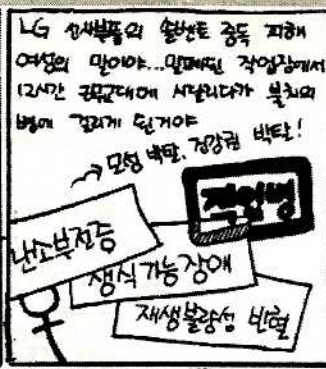 LG 전자부품의 솔벤트 중독 피해
여성의 말이야...밀폐된 작업장에서
12시간 맞교대에 시달리다가 불치의
병에 걸리게 된거야
→모성 박탈, 건강권 박탈!
직업병
난소부전증
생식기능장애
재생불량성 빈혈